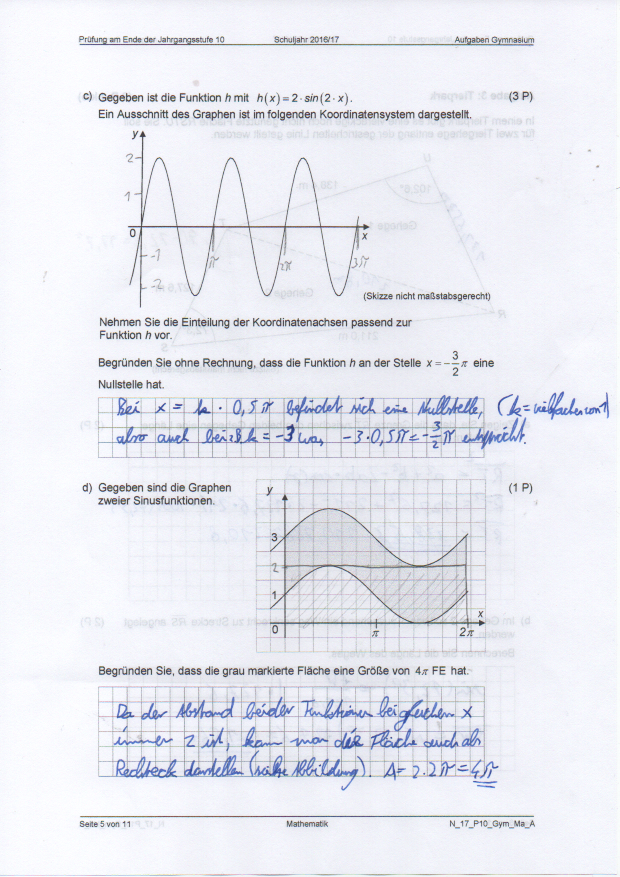 Prüfung am Ende der Jahrgangsstufe 10 Schuljahr 2016/17 Aufgaben Gymnasium
c) Gegeben ist die Funktion h mit h(x) = 2 · sin(2 · x). (3 P)
Ein Ausschnitt des Graphen ist im folgenden Koordinatensystem dargestellt.
y
2
1
0
x
-1
-2
π 2π 3π
(Skizze nicht maßstabsgerecht)
Nehmen Sie die Einteilung der Koordinatenachsen passend zur
Funktion h vor.
Begründen Sie ohne Rechnung, dass die Funktion h an der Stelle x = -3/2 π eine
Nullstelle hat.
Bei x = k · 0,5π befindet sich eine Nullstelle, (k = vielfaches von 1)
also auch bei z.B. k = -3 was, -3 · 0,5π = -3/2 π entspricht.
d) Gegeben sind die Graphen (1 P)
zweier Sinusfunktionen.
y
3
2
1
0
x
π 2π
Begründen Sie, dass die grau markierte Fläche eine Größe von 4π FE hat.
Da der Abstand beider Funktionen bei gleichen x
immer 2 ist, kann man die Fläche auch als
Rechteck darstellen (siehe Abbildung). A = 2 · 2π = 4π
Seite 5 von 11 Mathematik N_17_P10_Gym_Ma_A